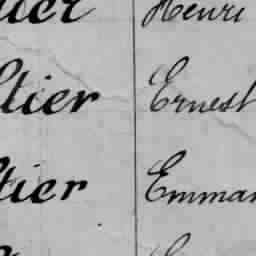 tier Henri
ltier Ernest
tier Emman